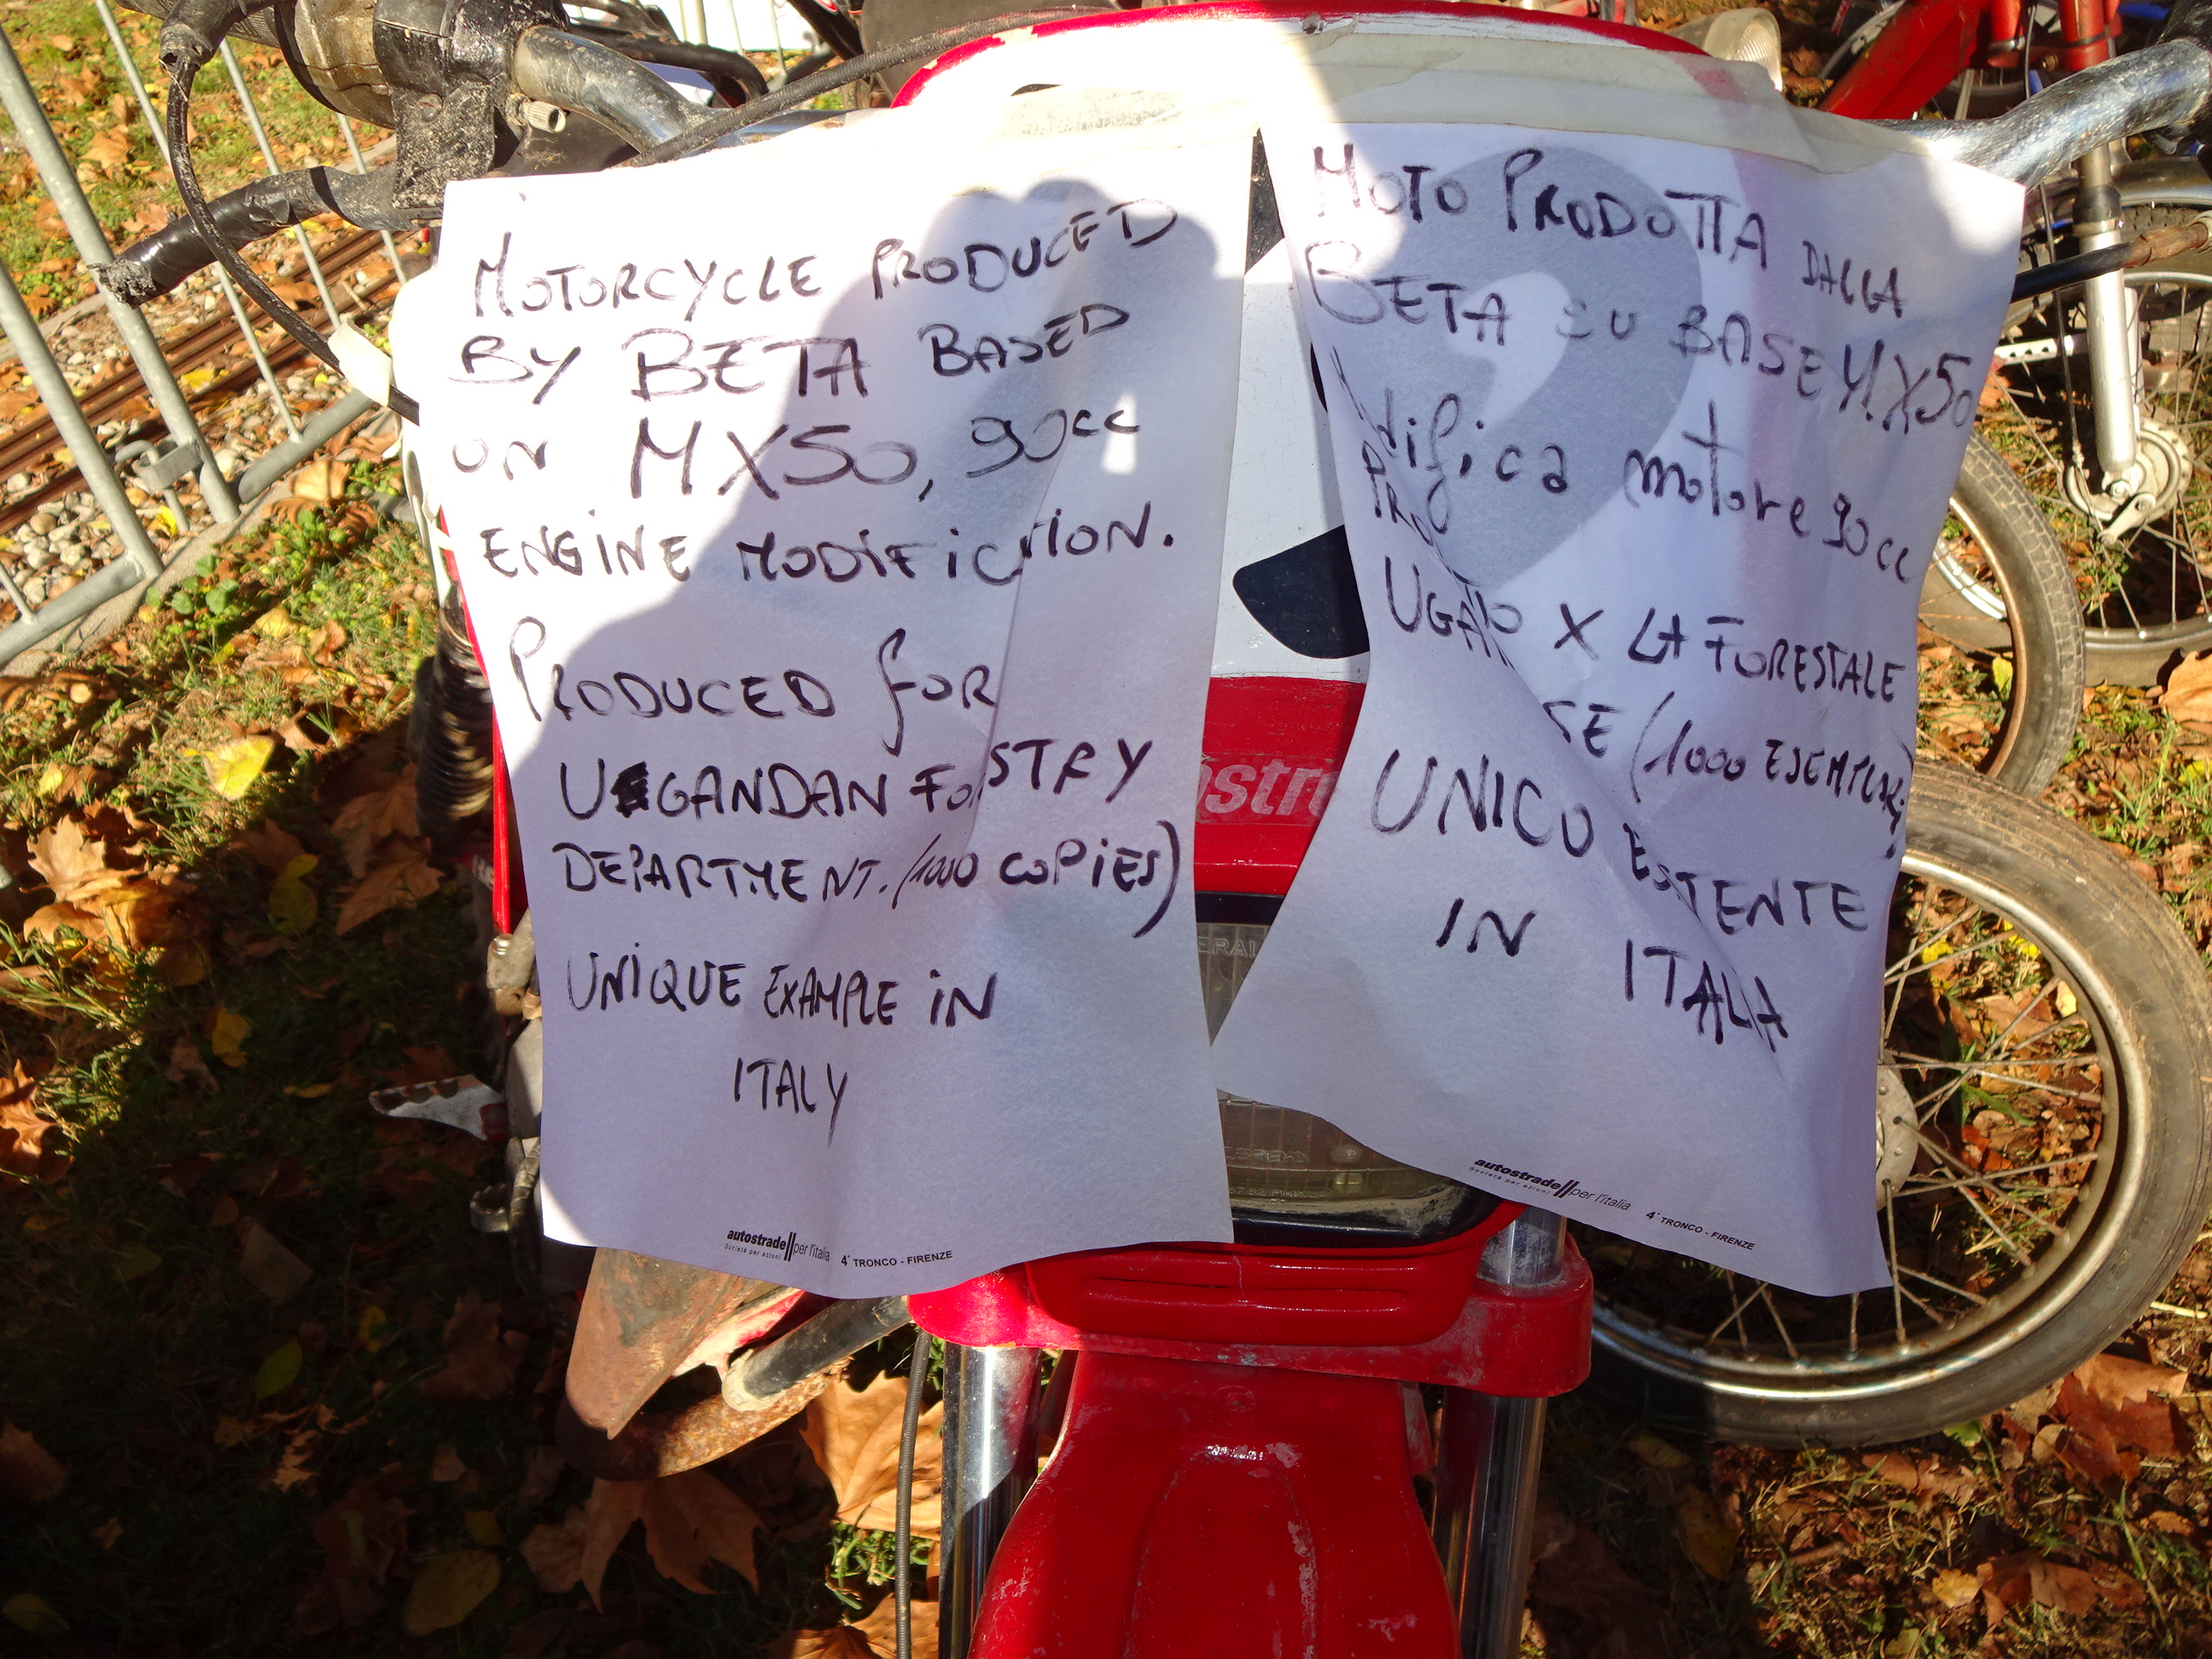 MOTORCYCLE PRODUCED
BY BETA BASED
ON MX50, 90cc
ENGINE MODIFICTION.
PRODUCED FOR
UGANDAN FOSTRY
DEPARTMENT. (1000 COPIES)
UNIQUE EXAMPLE IN
ITALY
autostrade//per l'italia
Società per azioni
4° TRONCO - FIRENZE
MOTO PRODOTTA DALLA
BETA SU BASE MX50
difica motore 90cc
PRO
UGAN X LA FORESTALE
SE (1000 ESEMPLARI)
UNICO ESTENTE
IN ITALIA
autostrade//per l'italia
Società per azioni
4° TRONCO - FIRENZE
ostr